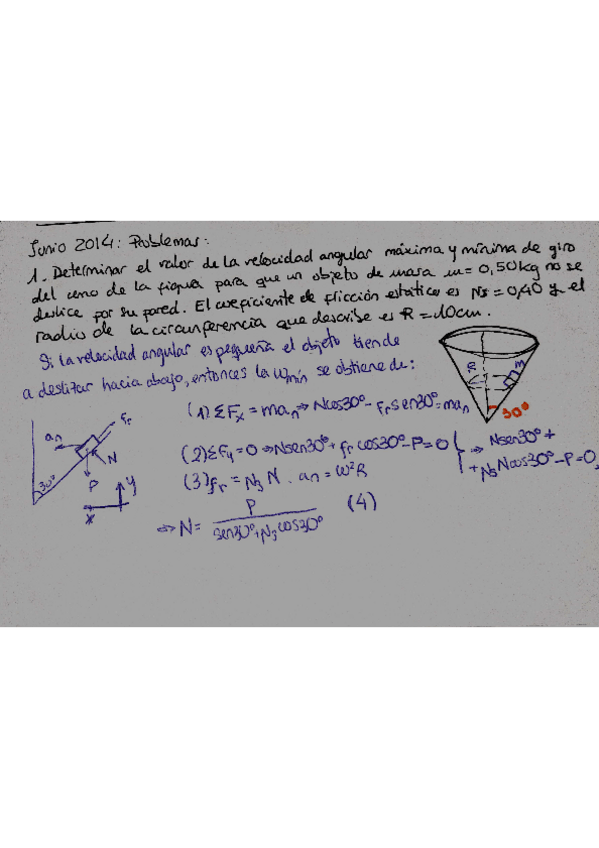 Junio 2014: Problemas:
1. Determinar el valor de la velocidad angular máxima y mínima de giro
del cono de la figura para que un objeto de masa m = 0,50 kg no se
deslice por su pared. El coeficiente de fricción estático es Ns = 0,40 y el
radio de la circunferencia que describe es R = 10cm.
Si la velocidad angular es pequeña el objeto tiende
a deslizar hacia abajo, entonces la ωmín se obtiene de:
R
m
30°
(1) ΣFx = man ⇒ Ncos30° - frsen30° = man
(2) ΣFy = 0 ⇒ Nsen30° + fr cos30° - P = 0 } ⇒ Nsen30° +
+ NsNcos30° - P = 0,
(3) fr = Ns N . an = ω²R
⇒ N = P / sen30° + Ns cos30° (4)
fr
an
N
P
30°
y
x